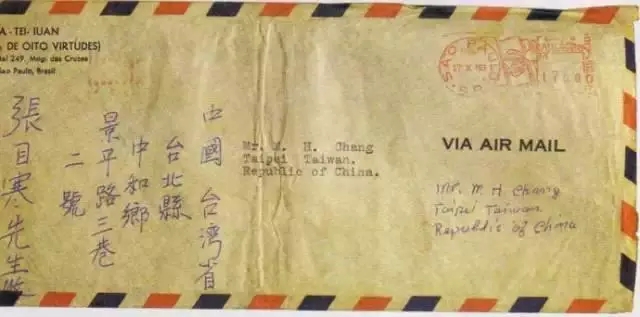 A-TEI-IUAN
DE OITO VIRTUDES)
249, Mogi das Cruzes
Sao Paulo, Brasil
SÃO PAULO
VIA AIR MAIL
Mr. M. H. Chang
Taipei Taiwan.
Republic of China.
Mr. M H Chang
Taipei Taiwan
Republic of China
中國 台湾省
台北縣
中和鄉
景平路三巷
二號
張目寒先生